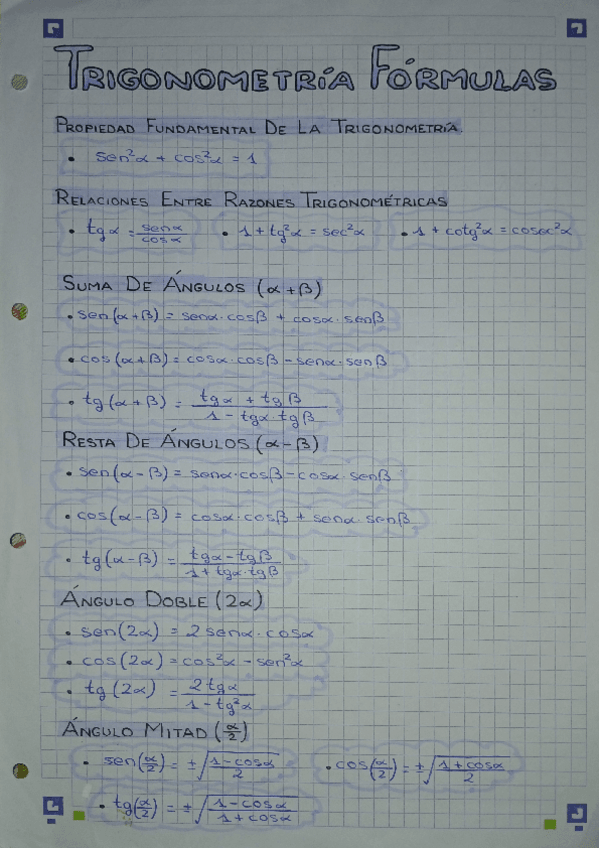 TRIGONOMETRÍA FÓRMULAS
PROPIEDAD FUNDAMENTAL DE LA TRIGONOMETRÍA.
• sen²α + cos²α = 1
RELACIONES ENTRE RAZONES TRIGONOMÉTRICAS
• tgα = senα/cosα • 1 + tg²α = sec²α • 1 + cotg²α = cosec²α
SUMA DE ÁNGULOS (α+β)
• sen(α+β) = senα·cosβ + cosα·senβ
• cos(α+β) = cosα·cosβ - senα·senβ
• tg(α+β) = (tgα + tgβ)/(1 - tgα·tgβ)
RESTA DE ÁNGULOS (α-β)
• sen(α-β) = senα·cosβ - cosα·senβ
• cos(α-β) = cosα·cosβ + senα·senβ
• tg(α-β) = (tgα - tgβ)/(1 + tgα·tgβ)
ÁNGULO DOBLE (2α)
• sen(2α) = 2senα·cosα
• cos(2α) = cos²α - sen²α
• tg(2α) = 2tgα/(1 - tg²α)
ÁNGULO MITAD (α/2)
• sen(α/2) = ±√((1-cosα)/2) • cos(α/2) = ±√((1+cosα)/2)
• tg(α/2) = ±√((1-cosα)/(1+cosα))